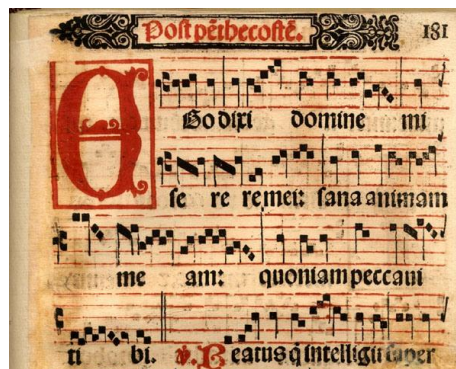 Post pēthecostē. 181
EGo dixi domine mi
se re re mei: sana animam
me am: quoniam peccaui
ti bi. ℣. Beatus q̄ intelligit super